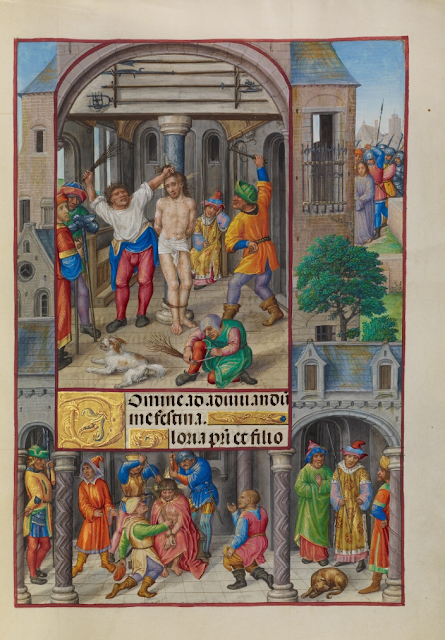 DOmine. ad. adiuuandū
me festina.
Gloria pr̄i et filio